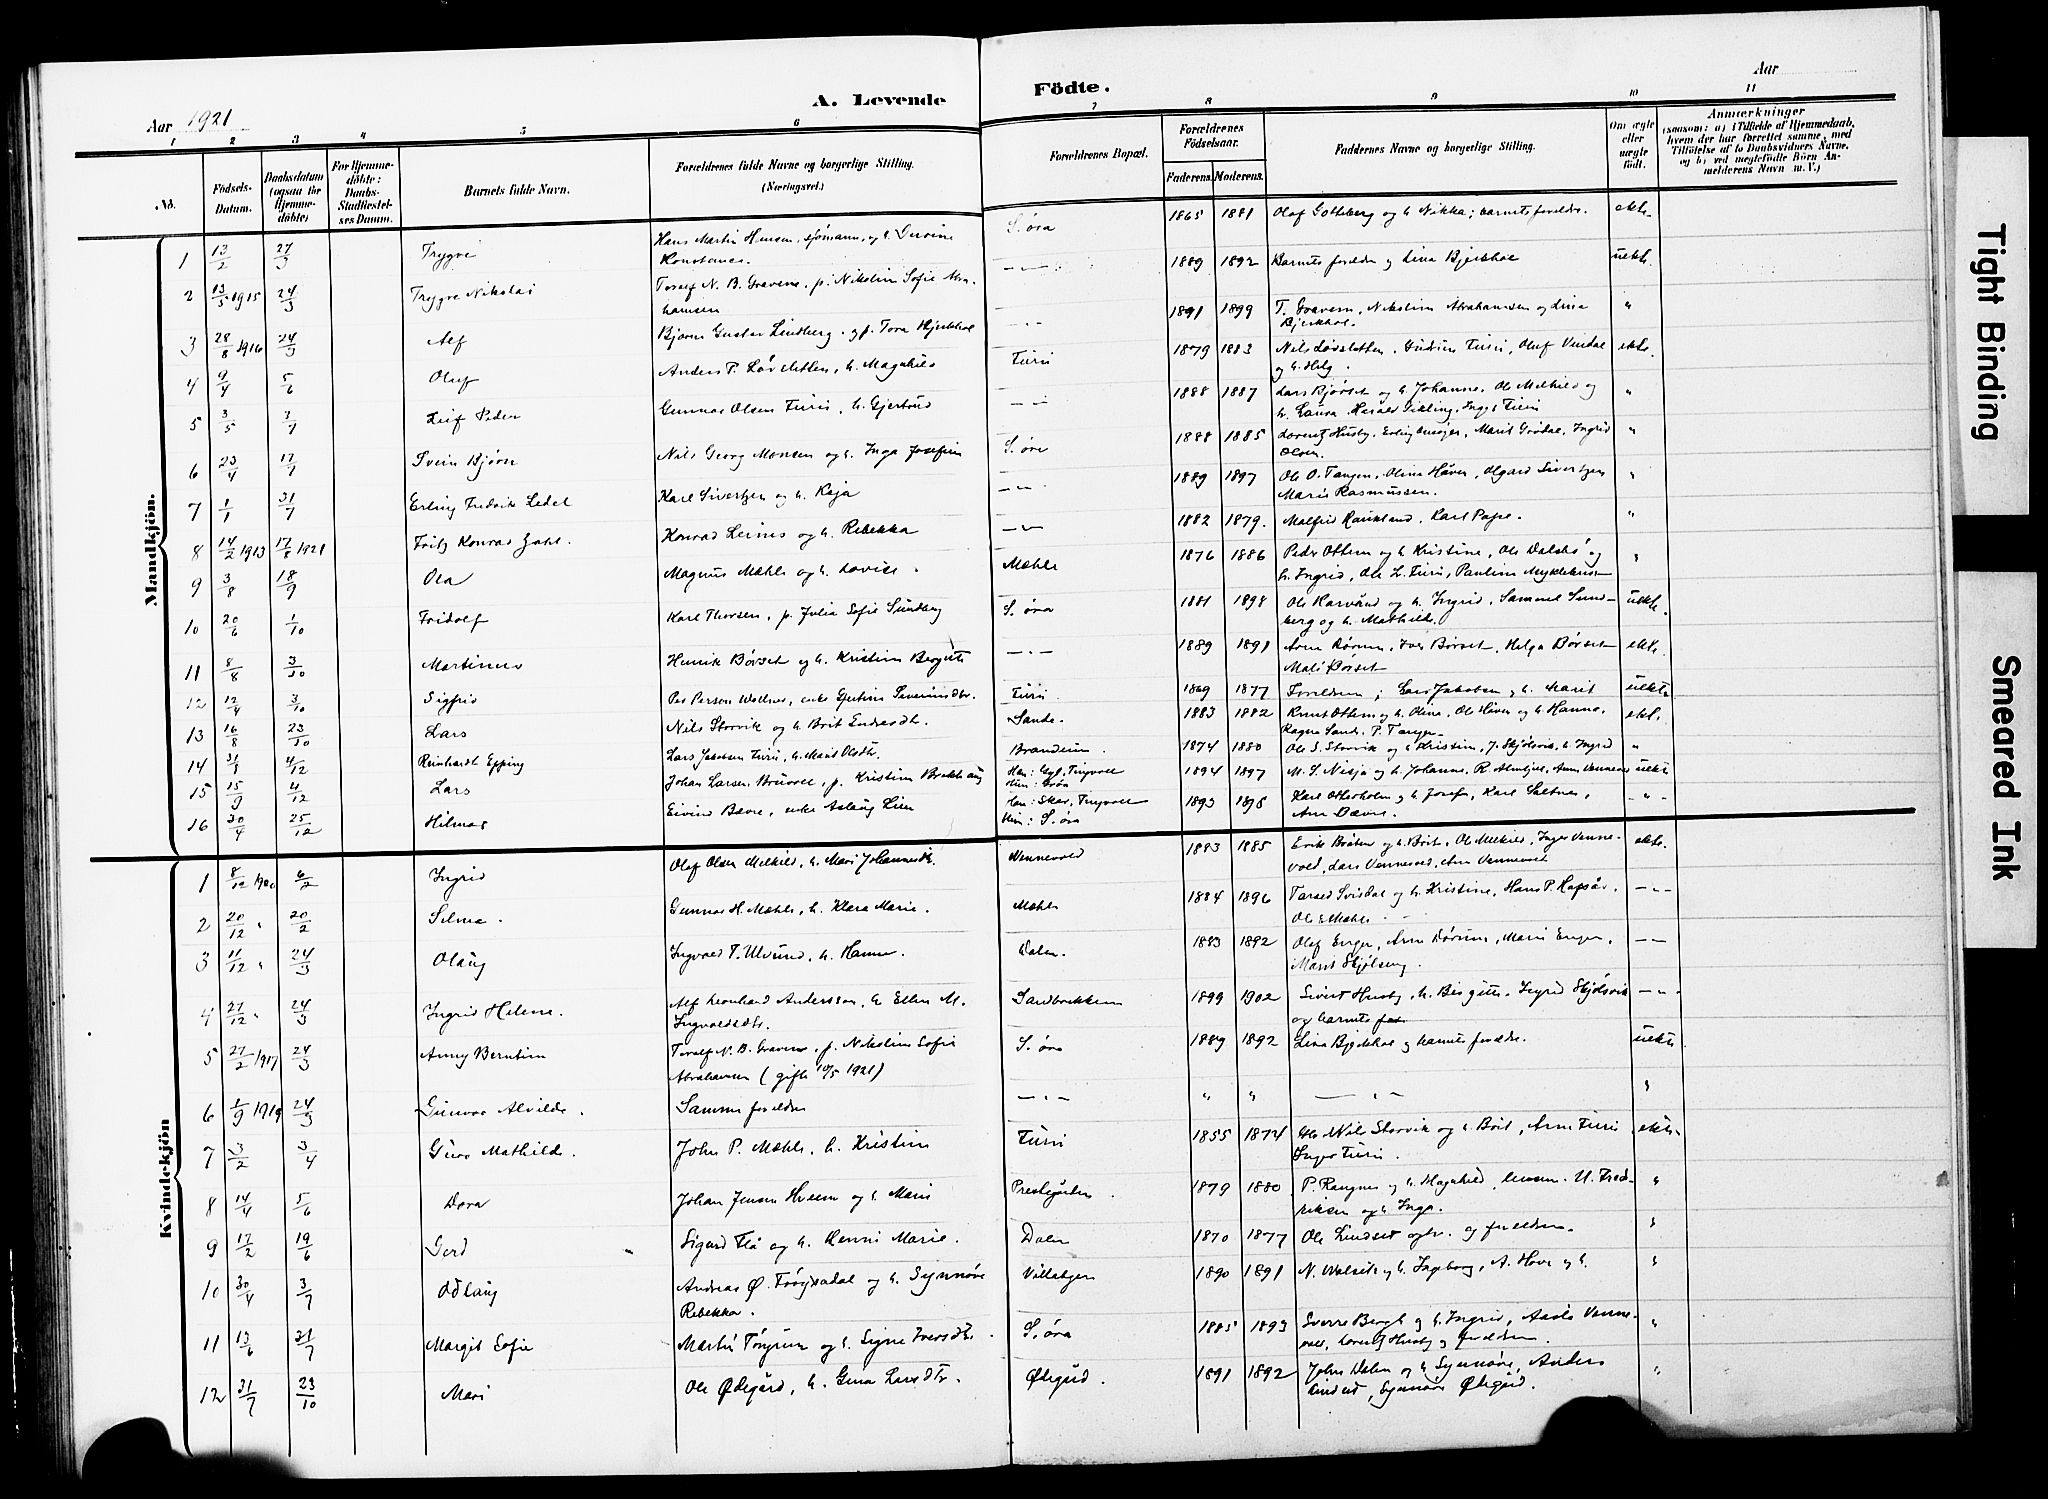 Aar 1921
A. Levende
Födte.
Aar
1 2 3 4 5 6 7 8 9 10 11
No.
Födsels-Datum.
Daabsdatum (ogsaa for Hjemme-döbte)
For Hjemme-döbte: Daabs-Stadfæstel-ses Datum.
Barnets fulde Navn.
Forældrenes fulde Navne og borgerlige Stilling. (Næringsvei.)
Forældrenes Bopæl.
Forældrenes Födselsaar.
Faderens. Moderens.
Faddernes Navne og borgerlige Stilling.
Om ægte eller uægte födt.
Anmærkninger
(saasom: a) i Tilfælde af Hjemmedaab, hvem der har forrettet samme, med Tilföielse af to Daabsvidners Navne, og b) ved uægtefödte Börn An-melderens Navn m. V.)
Mandkjön.
1 13/2 27/3 Trygve Hans Martin Hensen, sjömann, og h. Konstance. S. öra 1865 1881 Olaf Gotteberg og h. Nikka; barnets foreldre. ekte
2 13/5 1915 24/3 Trygve Nikolai Toralf N. B. Gravem, p. Nikolin Sofie Abra-hamsen — 1889 1892 Barnets foreldre og Lina Bjerkhol uekte.
3 28/8 1916 24/3 Alf Bjorn Gustav Lindberg, p. Tora Bjerkhol — 1891 1899 T. Gravem, Nikolin Abrahamsen og Lina Bjerkhol. "
4 9/4 5/6 Oluf Anders P. Lövsletten, h. Magnhild Furu 1879 1883 Nils Lövsletten, Gudrun Furu, Oluf Vindal og h. Helg. ekte.
5 3/5 3/7 Leif Peder Gunnar Olsen Furu, h. Gjertrud — 1888 1887 Lars Bjørset og h. Johanne, Ole Melkild og h. Laura, Harald Sikling, Inga Furu "
6 23/4 17/7 Svein Bjørn Nils Georg Monsen og h. Inga Josefine S. öra 1888 1885 Lorentz Husby, Marit Grødal, Ingrid Olsen. "
7 1/1 31/7 Erling Fredrik Ledel Karl Sivertsen og h. Kaja — 1889 1897 Ole O. Tangen, Oline Håven, Olgard Sivertsen Marie Rasmussen. "
8 14/2 1913 17/8 1921 Fritz Konrad Dahl. Konrad Leines og h. Rebekka — 1882 1879. Malfrid Raukland, Karl Pape. "
9 3/8 18/9 Ola Magnus Mæhle og h. Lovise. Mæhle 1876 1886 Peder Ottem og h. Kristine, Ole Dalsbø og h. Ingrid, Ole L. Furu, Pauline Myklebust "
10 20/6 1/10 Fridolf Karl Thorsen, p. Julia Sofie Sundberg S. öra 1881 1898 Ole Harvand og h. Ingrid, Samuel Sund-berg og h. Mathilde. uekte.
11 8/8 3/10 Martinus Henrik Børset og h. Kristine Bergitte — 1889 1891 Arne Dørum, Iver Børset, Helga Børset Mali Børset ekte.
12 12/4 3/10 Sigfrid Per Person Wollnes, enke Gjertine Sivertsdtr. Furu. 1869 1877 Foreldrene; Lars Jakobsen og h. Marit uekte
13 16/8 23/10 Lars Nils Storvik og h. Brit Endresdtr. Sande. 1883 1882 Knut Ottem og h. Olina, Ole Håven og h. Hanna, Ragna Sande, P. Tangen ekte.
14 31/8 4/12 Reinhardt Epping Lars Jakobsen Furu, h. Marit Olsdtr. Brandeim. 1874 1880 Ole S. Storvik og h. Kristine, J. Skjölsvik, h. Ingrid "
15 15/9 4/12 Lars Johan Larsen Bruvoll, p. Kristine Brekhaug Han: Gyl, Tingvoll Hun: Grøa 1894 1897 M. S. Nisja og h. Johanne, R. Almskjell, Anna Vennevold uekte
16 30/4 25/12 Hilmar Eivind Bævre, enke Aslaug Lien Han: Skar, Tingvoll Hun: S. öra 1893 1895 Karl Otterholm og h. Josefa, Karl Saltnes, Arne Bævre. — " —
Kvindekjön
1 8/12 1920 6/2 Ingrid Olaf Olsen Melkild, h. Mari Johannesdtr. Vennevold 1883 1885 Erik Bråten og h. Brit, Ole Melkild, Inger Venne-vold, Lars Vennevold, Arne Vennevold ekte.
2 20/12 " 20/2 Selma. Gunnar H. Mæhle, h. Klara Marie. Mæhle 1884 1896 Tarald Svisdal og h. Kristine, Hans P. Hafsås, Ole E Mæhle — " —
3 11/12 " 24/3 Olaug Ingvald T. Ulvund, h. Hanna. Dalen. 1883 1892 Olaf Enger, Arne Dörum, Marie Enger, Marit Skjølseng. — " —
4 27/12 " 24/3 Ingrid Helene. Alf Leonhard Andersson, h. Ellen M. Ingvaldsdtr. Sandbrekken 1899 1902 Sivert Husby, h. Birgitte, Ingrid Skjölsvik og barnets far — " —
5 27/2 1917 24/3 Anny Berntine Toralf N. B. Gravem, p. Nikoline Sofie Abrahamsen (gifte 10/5 1921) S. öra 1889 1892 Lina Bjerkhol og barnets foreldre. uekte
6 1/9 1919 24/3 Gunvor Alvilde. Samme foreldre — " — " " — " — "
7 3/2 3/4 Guro Mathilde. John P. Mæhle, h. Kristine Furu 1855 1874 Nils Storvik og h. Brit, Arne Furu Inger Furu. ekte.
8 14/4 5/6 Dora Johan Jensen Hveem og h. Marie Prestegården. 1879 1880 P. Rangnes og h. Magnhild, U. Fred-riksen og h. Inga. "
9 17/2 19/6 Gerd Sigurd Flå og h. Jenni Marie. Dalen 1870 1877 Ole Lindset og foreldrene. "
10 30/4 3/7 Odlaug Andreas Ø. Trøgsdal og h. Synnøve Rebekka. Villabyen 1890 1891 N. Walseth og h. Ingeborg, A. Hove og h. "
11 13/6 31/7 Margit Sofie Martin Töngrum og h. Signe Iversdtr. S. öra 1885 1893 Sverre Bergh og h. Ingrid, Aasta Venne-vold, Lorentz Husby og foreldrene. "
12 31/7 23/10 Mari Ole Ødegård, h. Gina Larsdtr. Ødegård. 1891 1892 John Dalen og h. Synnøve, Anders Lindset, Synnøve Ødegård. "
Tight Binding
Smeared Ink